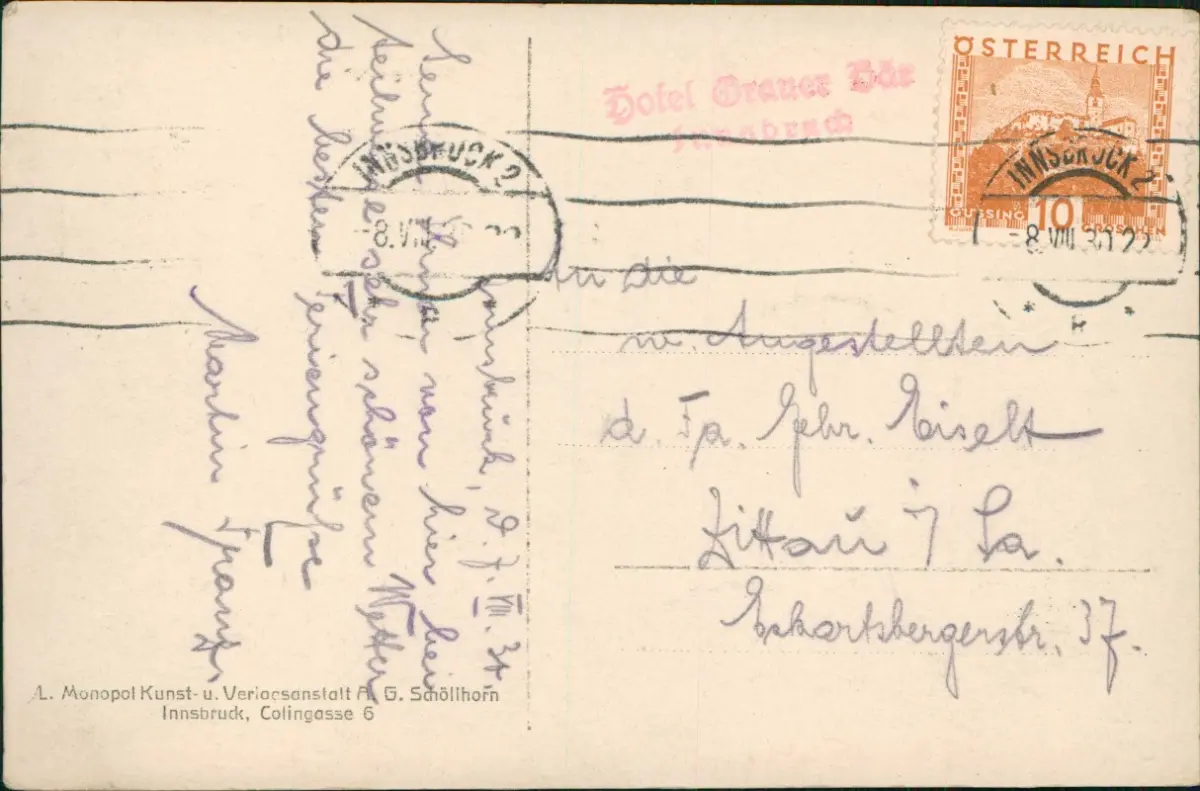 Innsbruck, d. 7. VIII. 30
Sende Ihnen von hier bei
teilweise sehr schönem Wetter
die besten Feriengrüße
Martin Frantz
L. Monopol Kunst- u. Verlagsanstalt A. G. Schöllhorn
Innsbruck, Colingasse 6
Hotel Grauer Bär
Innsbruck
ÖSTERREICH
GÜSSING 10 GROSCHEN
INNSBRUCK 2
-8.VIII.30.22
INNSBRUCK 2
-8.VIII.30.22
An die
w. Angestellten
d. Fa. Gebr. Eiselt
Zittau i/ Sa.
Eckartsbergerstr. 37.